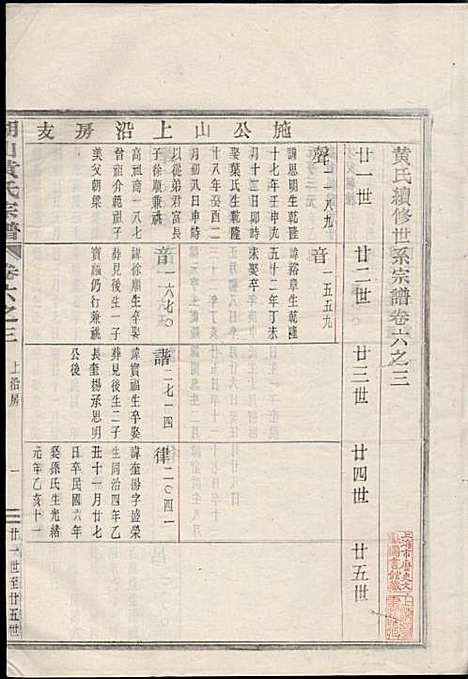 黄氏續修世系宗譜卷六之三
廿一世
廿二世
廿三世
廿四世
廿五世
施公山上沿房支
聲一一八九
諱思明生乾隆
十七年壬申十
月十三日卯時
娶葉氏生乾隆
十八年癸酉二
月初八日申時
以從弟君富長
子徐順兼祧
高祖志一八七
曾祖介範祖子
美父朝樂
音一五五九
諱裕章生乾隆
五十二年丁未
未娶卒
音一六七〇
諱徐順生卒娶
葬見後生一子
寶福仍行兼祧
諧二七一四
諱寶福生卒娶
葬見後生二子
長奎楊承思明
公後
律二一〇四一
諱奎楊字盛榮
生同治四年乙
丑十一月廿七
日卒民國六年
娶孫氏生光緒
元年乙亥十一
山黄氏宗譜
卷六之三
上沿房
一
廿一世至廿五世
上海市歷史文
獻圖書館藏